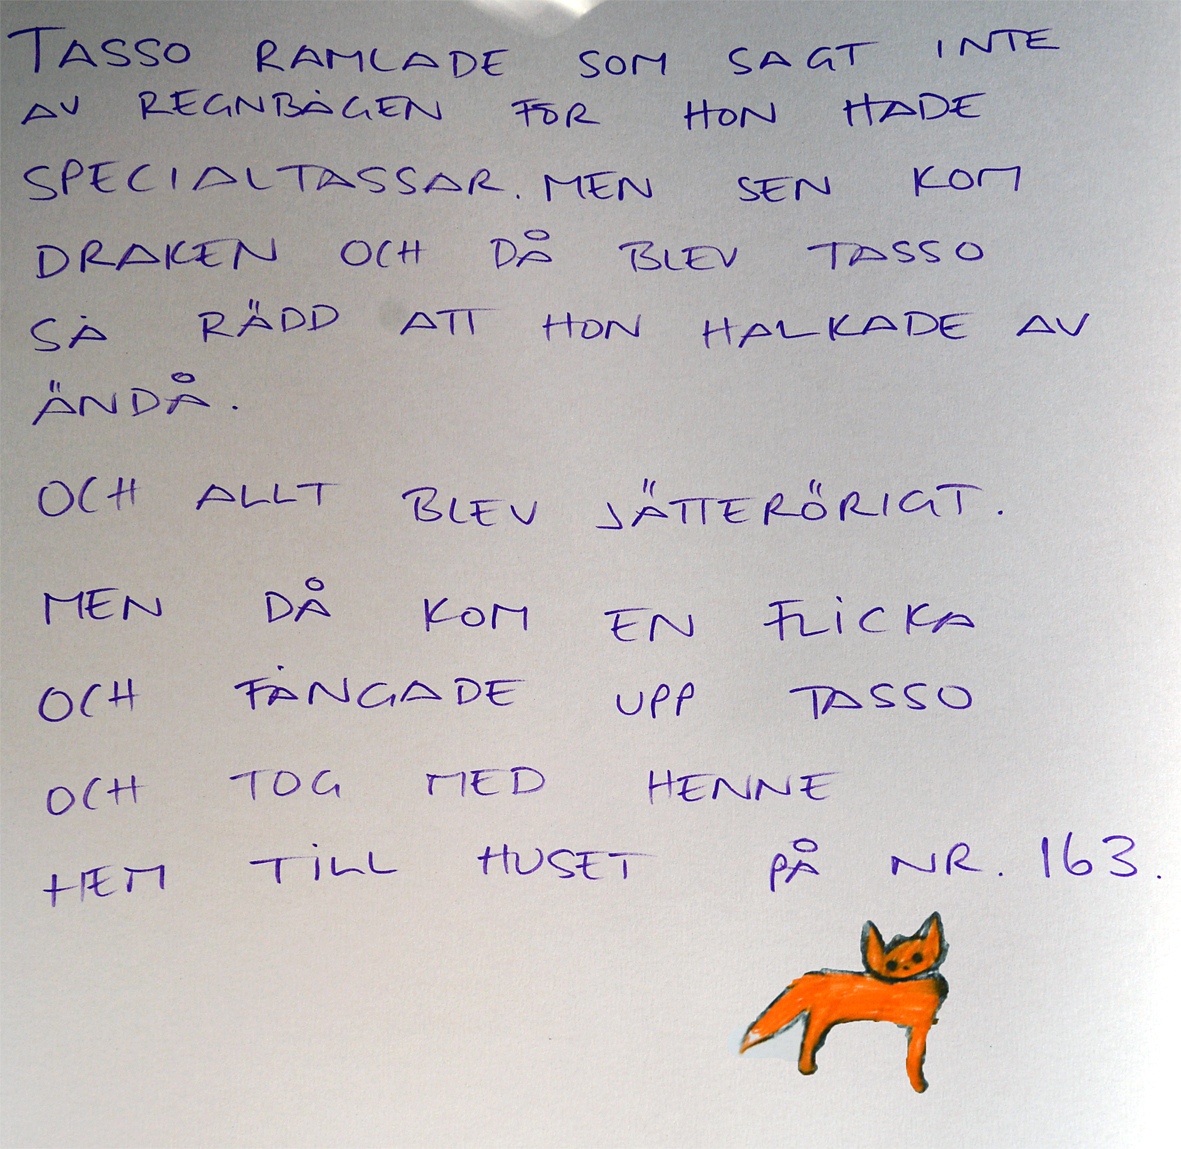 TASSO RAMLADE SOM SAGT INTE
AV REGNBÅGEN FÖR HON HADE
SPECIALTASSAR. MEN SEN KOM
DRAKEN OCH DÅ BLEV TASSO
SÅ RÄDD ATT HON HALKADE AV
ÄNDÅ.
OCH ALLT BLEV JÄTTERÖRIGT.
MEN DÅ KOM EN FLICKA
OCH FÅNGADE UPP TASSO
OCH TOG MED HENNE
HEM TILL HUSET PÅ NR. 163.